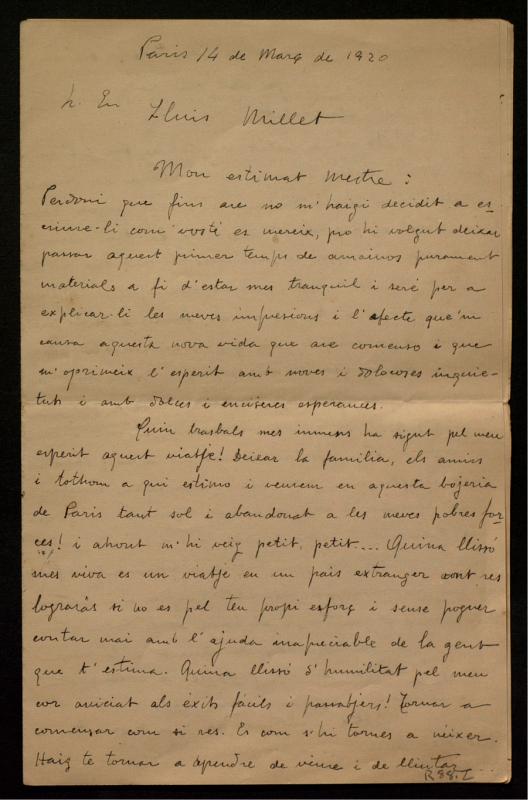 Paris 14 de Març de 1920
Sr. En Lluis Millet
Mon estimat mestre:
Perdoni que fins are no m'haigi decidit a es
criure-li com vosté es mereix, pro hi volgut deixar
passar aquest primer temps de amoinos purament
materials a fi d'estar mes tranquil i seré per a
explicar-li les meves impresions i l'efecte que'm
causa aquesta nova vida que are comenso i que
m'oprimeix l'esperit amb noves i doloroses inquie-
tuts i amb dolces i enciseres esperances.
Quin trasbals mes inmens ha sigut pel meu
esperit aquest viatje! Deixar la familia, els amics
i tothom a qui estimo i veurem en aquesta bojeria
de Paris tant sol i abandonat a les meves pobres for
ces! i ahont m'hi veig petit, petit... Quina llissó
mes viva es un viatje en un pais extranger ont res
lograràs si no es pel teu propi esforç i sense poguer
contar mai amb l'ajuda inapreciable de la gent
que t'estima. Quina llissó d'humilitat pel meu
cor aviciat als èxits fàcils i passatjers! Tornar a
començar com si res. Es com s'hi tornes a néixer.
Haig te tornar a apendre de viure i de lluitar...
R 88. L